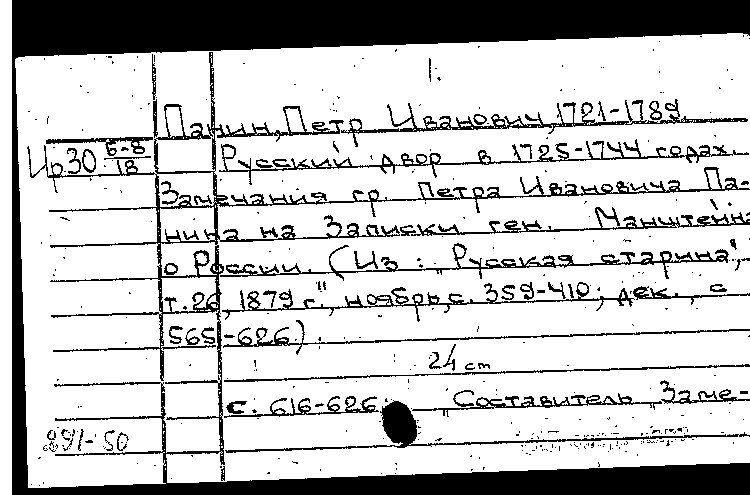 1.
Панин, Петр Иванович, 1721-1789.
Ир30 6-8/18 Русский двор в 1725-1744 годах.
Замечания гр. Петра Ивановича Па-
нина на Записки ген. Манштейна
о России. (Из: „Русская старина",
т. 26, 1879 г.", ноябрь, с. 359-410; дек., с
565-626).
24 cm
с. 616-626. „Составитель „Заме-
291-50